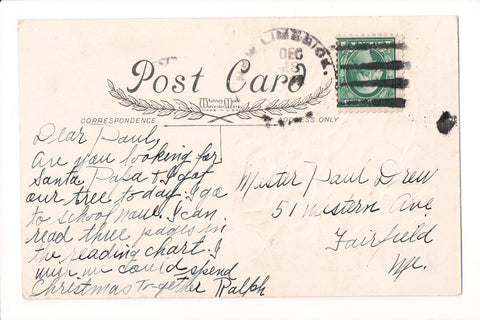 LIMERICK.
DEC
Post Card
Whitney Made
Worcester Mass
CORRESPONDENCE
ADDRESS ONLY
Dear Paul,
Are you looking for
Santa Papa & I got
our tree today. I go
to school now. I can
read three pages in
the reading chart. I
wish we could spend
Christmas together Ralph
Mister Paul Drew
51 Western Ave
Fairfield
Me.